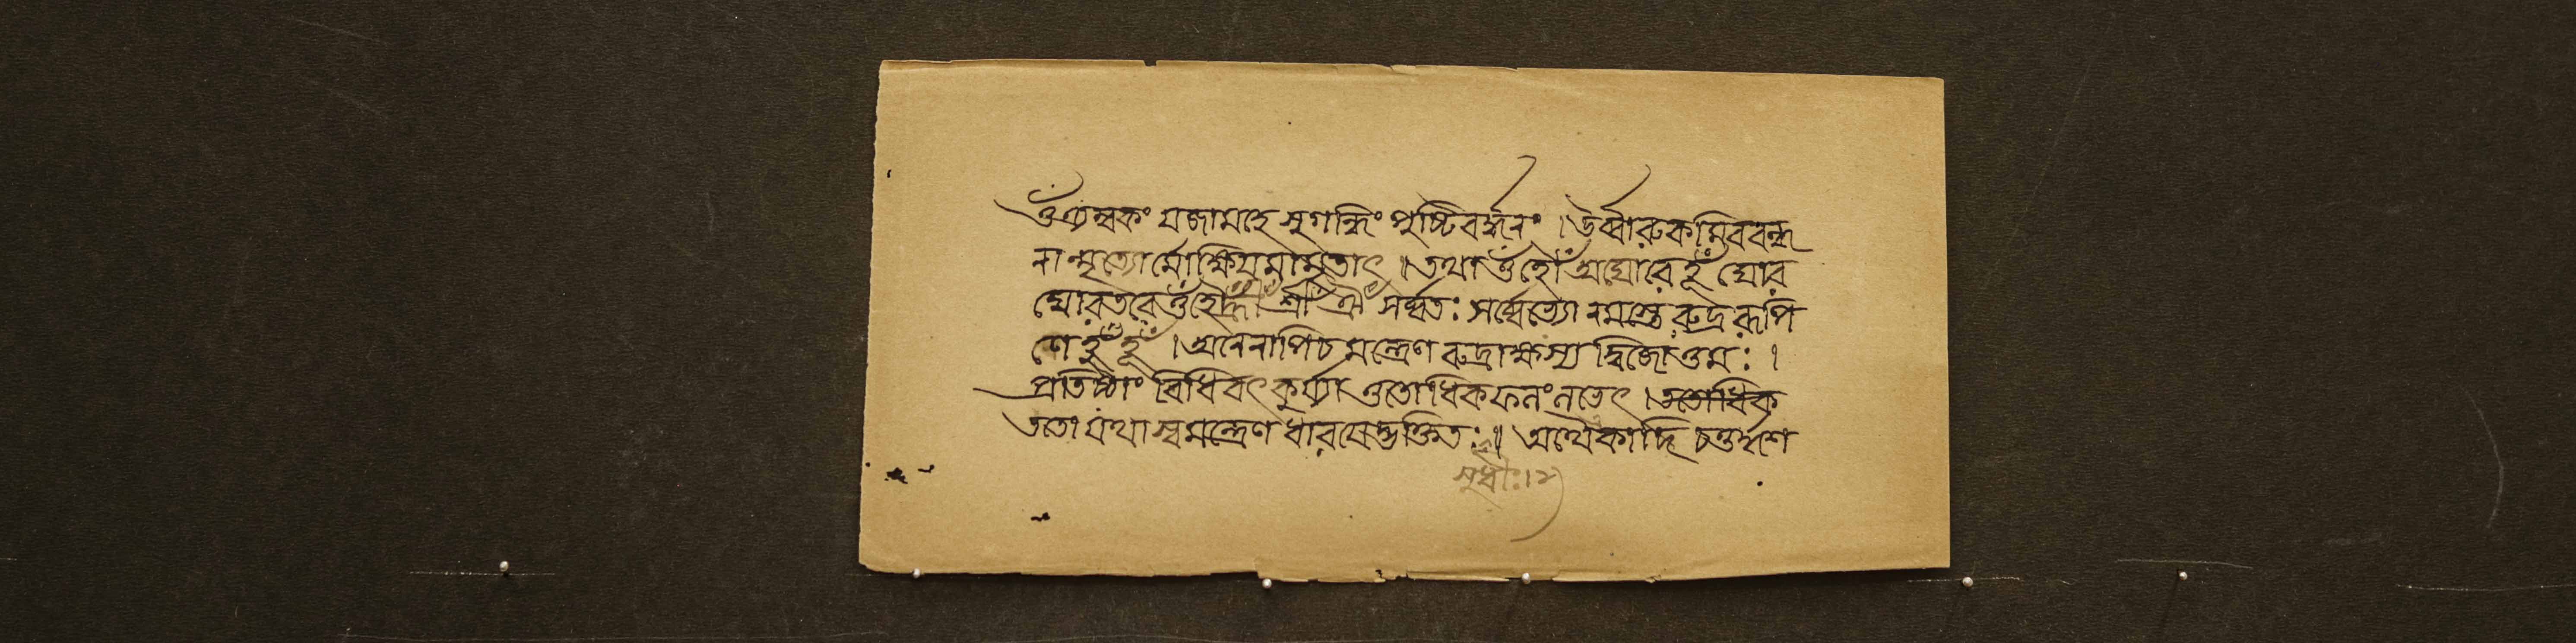 ওঁ ত্র্যম্বকং যজামহে সুগন্ধিং পুষ্টিবর্দ্ধনং । উর্ব্বারুকমিব বন্ধ
নান্মৃত্যোর্মোক্ষিয়মামৃতাৎ । তথা ওঁ হৌঁ অঘোরে হূঁ ঘোর
ঘোরতরে ওঁ হৌঁ হ্রীঁ শ্রীঁ ঐঁ সর্ব্বতঃ সর্ব্বেভ্যো নমস্তে রুদ্ররূপি
ণে হূঁ হূঁ । অনেনাপি চ মন্ত্রেণ রুদ্রাক্ষস্য দ্বিজোত্তমঃ ।
প্রতিষ্ঠাং বিধিবৎ কুর্য্যাত্ততোধিকফলংলভেৎ । ততোধিক
ততো যথা স্বমন্ত্রেণ ধারয়েদ্ভক্তিতঃ ॥ অথৈকাদি চতুর্দ্দশ
সুধীঃ ।২